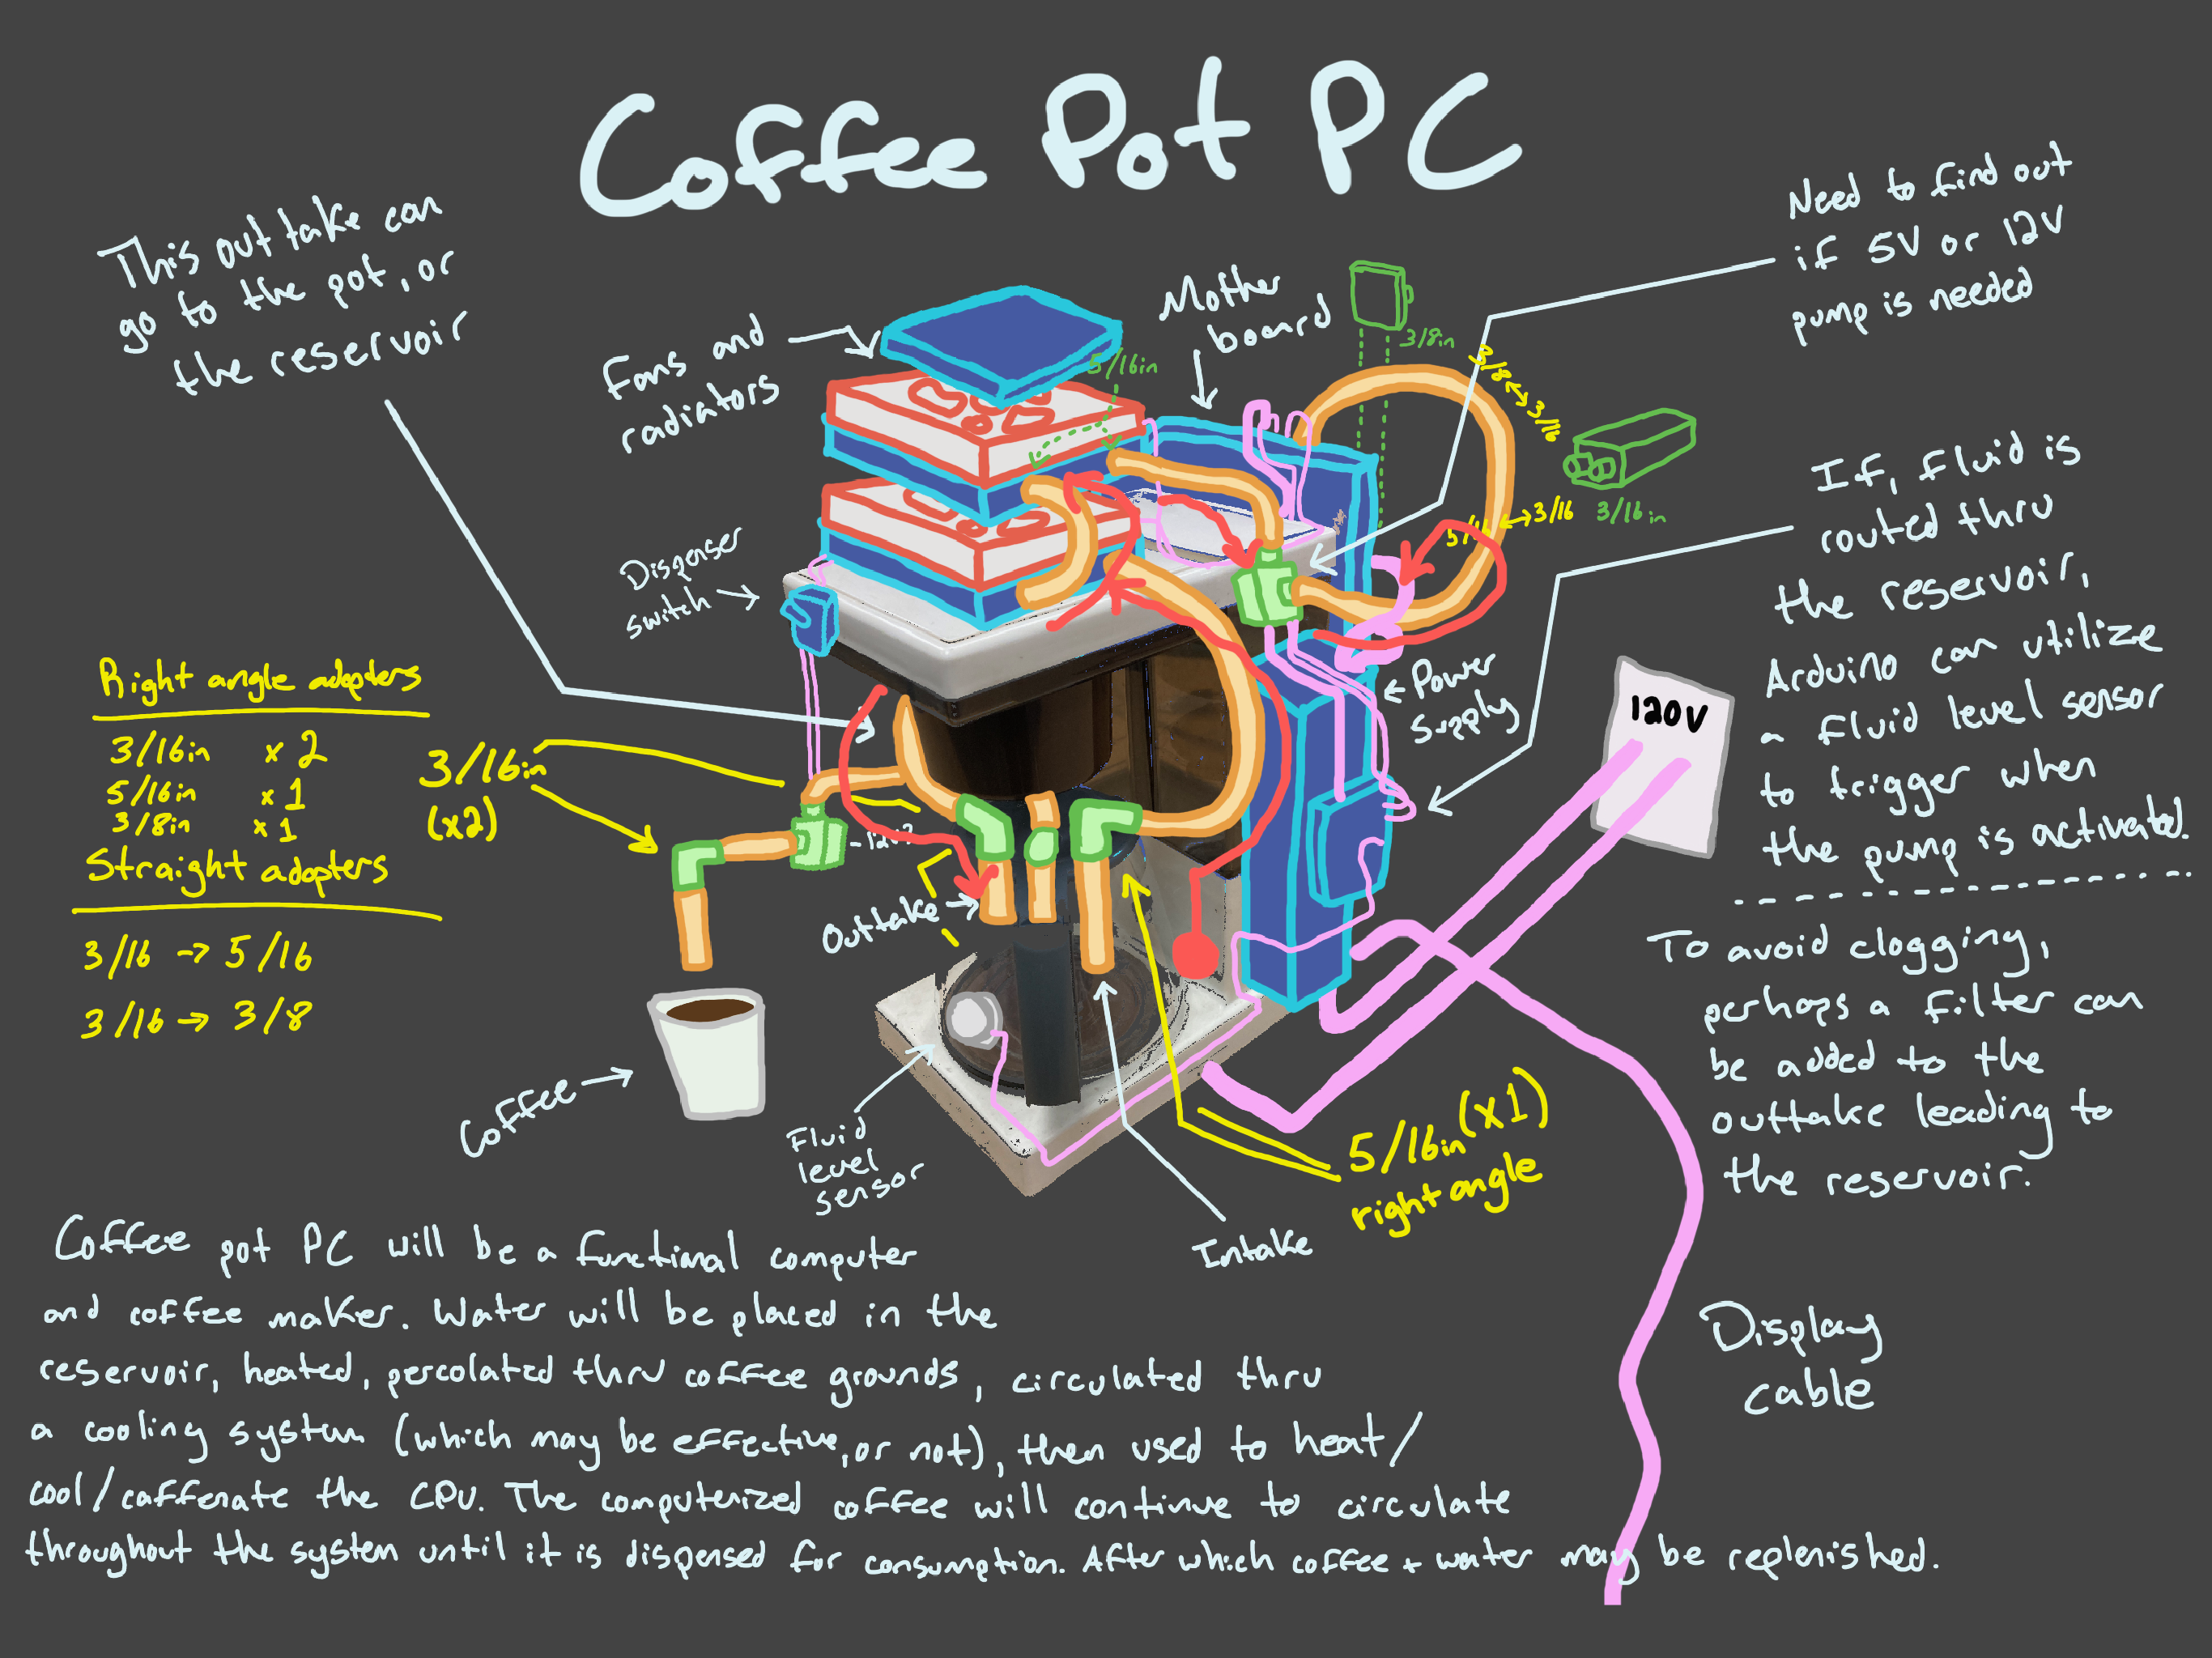 Coffee Pot PC
This outtake can
go to the pot, or
the reservoir
Fans and
radiators
Mother
board
Need to find out
if 5V or 12V
pump is needed
3/8in
5/16in
3/8 ↔ 3/16
5/16 ↔ 3/16
3/16in
Dispenser
switch
Power
supply
If, fluid is
routed thru
the reservoir,
Arduino can utilize
a fluid level sensor
to trigger when
the pump is activated.
To avoid clogging,
perhaps a filter can
be added to the
outtake leading to
the reservoir.
120V
Right angle adapters
3/16in x 2
5/16in x 1
3/8in x 1
Straight adapters
3/16 → 5/16
3/16 → 3/8
3/16in
(x2)
Outtake
Coffee
Fluid
level
sensor
Intake
5/16in (x1)
right angle
Display
cable
Coffee pot PC will be a functional computer
and coffee maker. Water will be placed in the
reservoir, heated, percolated thru coffee grounds, circulated thru
a cooling system (which may be effective, or not), then used to heat/
cool/caffenate the CPU. The computerized coffee will continue to circulate
throughout the system until it is dispensed for consumption. After which coffee + water may be replenished.